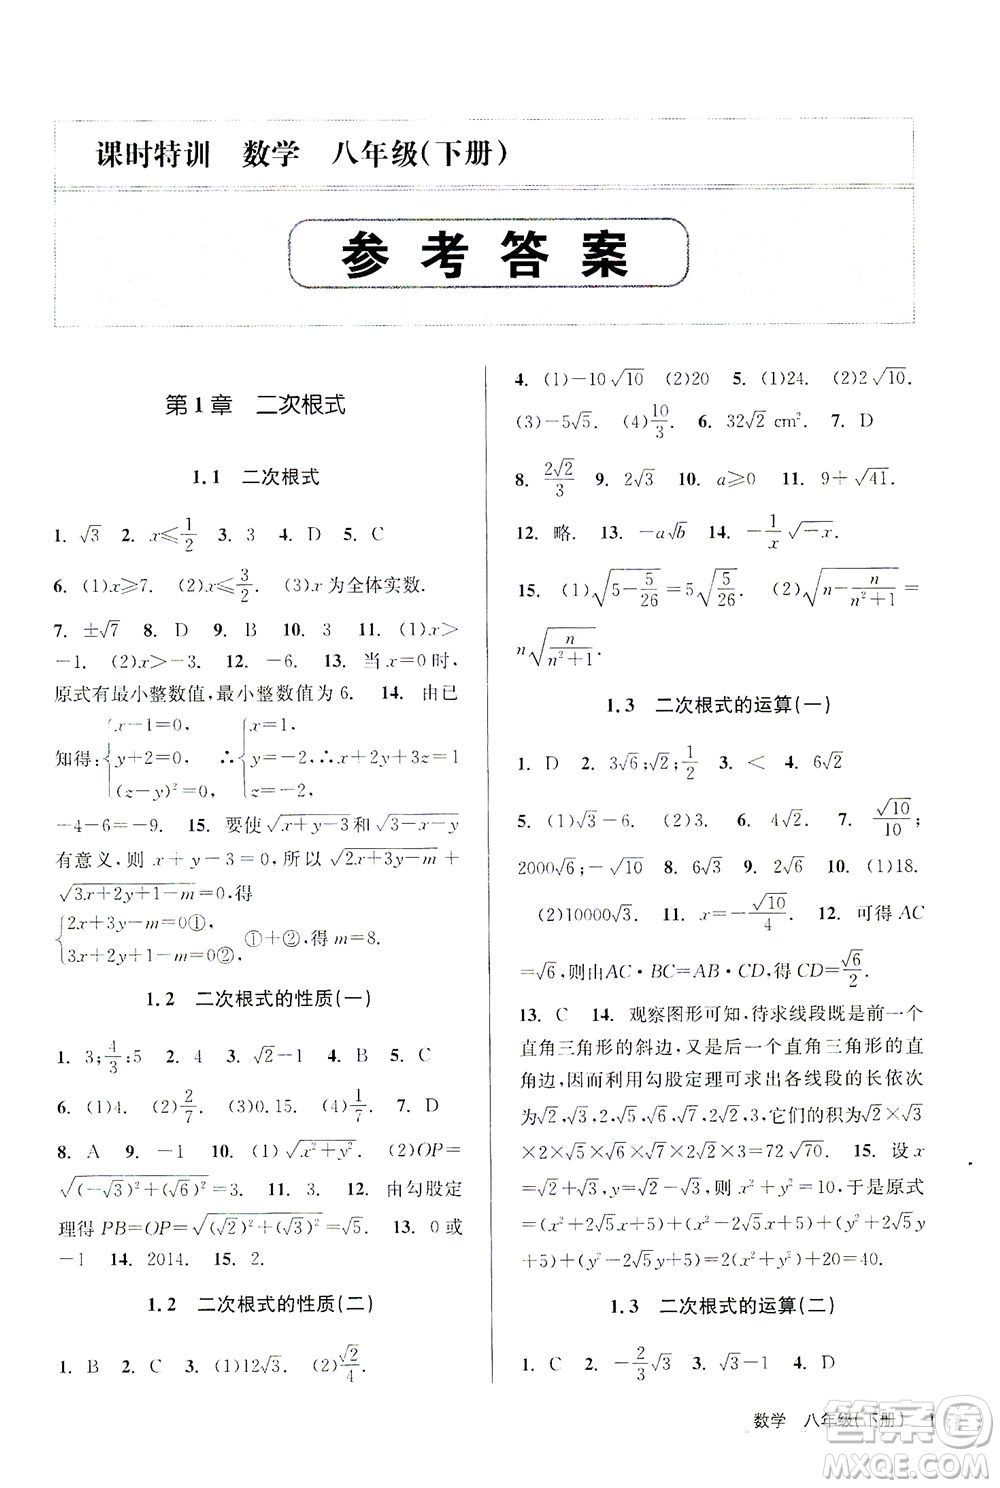 课时特训　数学　八年级(下册)
参考答案
第1章　二次根式
1.1　二次根式
1. √3　2. x≤1/2　3. 3　4. D　5. C
6. (1)x≥7.　(2)x≤3/2.　(3)x 为全体实数.
7. ±√7　8. D　9. B　10. 3　11. (1)x>
-1.　(2)x>-3.　12. -6.　13. 当 x=0 时,
原式有最小整数值,最小整数值为 6.　14. 由已
知得:{x-1=0, y+2=0, (z-y)²=0, ∴{x=1, y=-2, z=-2, ∴x+2y+3z=1
-4-6=-9.　15. 要使√(x+y-3)和√(3-x-y)
有意义,则 x+y-3=0,所以√(2x+3y-m)+
√(3x+2y+1-m)=0,即
{2x+3y=m①, 3x+2y+1=m②, ①+②,得 m=8.
1.2　二次根式的性质(一)
1. 3;4/3;5　2. 4　3. √2-1　4. B　5. C
6. (1)4.　(2)2/7.　(3)0.15.　(4)1/7.　7. D
8. A　9. -1　10. (1)√(x²+y²).　(2)OP=
√((-√3)²+(√6)²)=3.　11. 3.　12. 由勾股定
理得 PB=OP=√((√2)²+(√3)²)=√5.　13. 0或
-1　14. 2014.　15. 2.
1.2　二次根式的性质(二)
1. B　2. C　3. (1)12√3.　(2)√2/4.
4. (1)-10√10.　(2)20　5. (1)24.　(2)2√10.
(3)-5√5.　(4)10/3.　6. 32√2 cm².　7. D
8. 2√2/3　9. √3　10. a≥0　11. 9+√41.
12. 略.　13. -a√b　14. -1/x √(-x).
15. (1)√(5-5/26)=5√(5/26)　(2)√(n-n/(n²+1))=
n√(n/(n²+1)).
1.3　二次根式的运算(一)
1. D　2. 3√6;√2;1/2　3. <　4. 6√2
5. (1)√3-6.　(2)3.　6. 4√2.　7. √10/10;
2000√6;-√10　8. 6√3　9. 2√6　10. (1)18.
(2)10000√3.　11. x=-√10/4.　12. 可得 AC
=√6,则由AC·BC=AB·CD,得 CD=√6/2.
13. C　14. 观察图形可知,待求线段既是前一个
直角三角形的斜边,又是后一个直角三角形的直
角边,因而利用勾股定理可求出各线段的长依次
为√2,√3,2,√5,√6,√7,2√2,3,它们的积为√2×√3
×2×√5×√6×√7×2√2×3=72√70.　15. 设
x=√5+√3,y=√5-√3,则 x²+y²=10,于是原式
=(x²+2√5)(y²-2√5)+(x²-2√5)(y²+2√5)
=(y²-2√5+2√5)+(y²+2√5)=2(x²+y²)+20=40.
1.3　二次根式的运算(二)
1. C　2. -2/3√3　3. √3-1　4. D
数学　八年级(下册)　1
答案圈
MXQE.COM